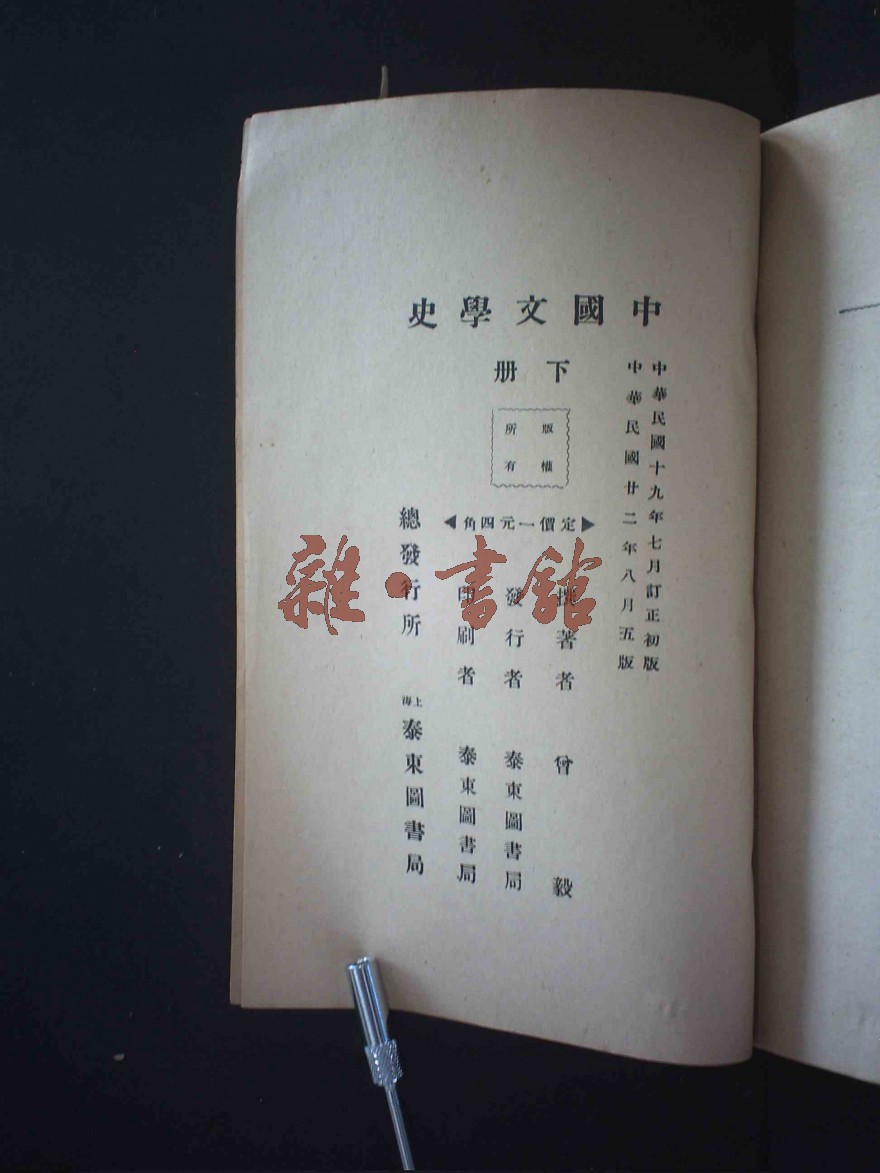 中國文學史
下册
中華民國十九年七月訂正初版
中華民國廿二年八月五版
版權所有
定價一元四角
撰著者 曾毅
發行者 泰東圖書局
印刷者 泰東圖書局
總發行所 上海泰東圖書局
雜·書館